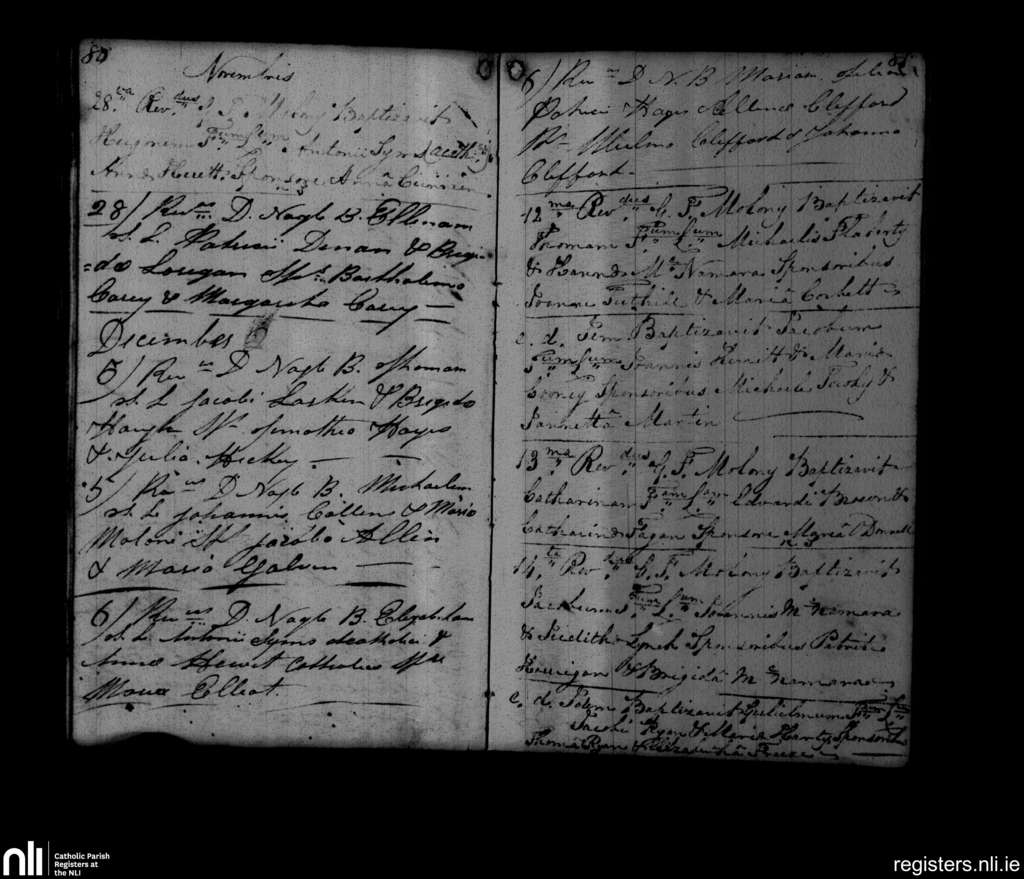 80
Novembris
28.va Rev.dus J. F. Molony Baptizavit
Hugonem F.ium L.um Antonii Syms
Anna Hewett. Sponsore Anna
28/ Rev.us D. Nagle B. Ellenam
f. L. Patricii Dinan & Brigi
=dæ Lonegan Sp.s Bartholimio
Carey & Margarita Carey —
December
5/ Rev.us D Nagle B. Thomam
f. L Jacobi Larkin & Brigida
Haugh Sp. Timotheo Hayes
& Julia Hickey —
5/ Rev.us D Nagle B. Michaelem
f. L Johannis Cullen & Maria
Moloni Sp. Jacobo Allen
& Maria Galvin —
6/ Rev.us D. Nagle B. Elizabetham
f. L. Antonii Syms &
Anna Hewet Catholica Sp.
Maria Elliot.
6/ Rev.us D. N. B Mariam filia
Patricii Hayes & Elline Clifford
Clifford & Johanna
Clifford —
12.ma Rev.dus J. F. Molony Baptizavit
Thomam F.ium L.um Michaelis Flaherty
& Honorda McNamara Sponsoribus
Joanne Tuthill & Mariâ Corbett
e. d. Idem Baptizavit Jacobum
F.ium L.um Joannis Hewitt & Maria
Cooney Sponsoribus Michaele &
Martin
13.ma Rev.dus J. F. Molony Baptizavit
Catharinam F.iam L.am Edvardi &
Catharinda Fagan Sponsore Mariâ O'Donnell
14.ta Rev.dus J. F. Molony Baptizavit
Jacobum F.ium L.um Joannis McNamara
& Judith Lynch Sponsoribus Patritio
Hourigan & Brigidâ McNamara
e. d. Idem Baptizavit Gulielmum F.ium L.um
Jacobi Ryan & Maria Harty Sponsorib
Thoma Ryan & Elizabethâ
nli
Catholic Parish
Registers at
the NLI
registers.nli.ie